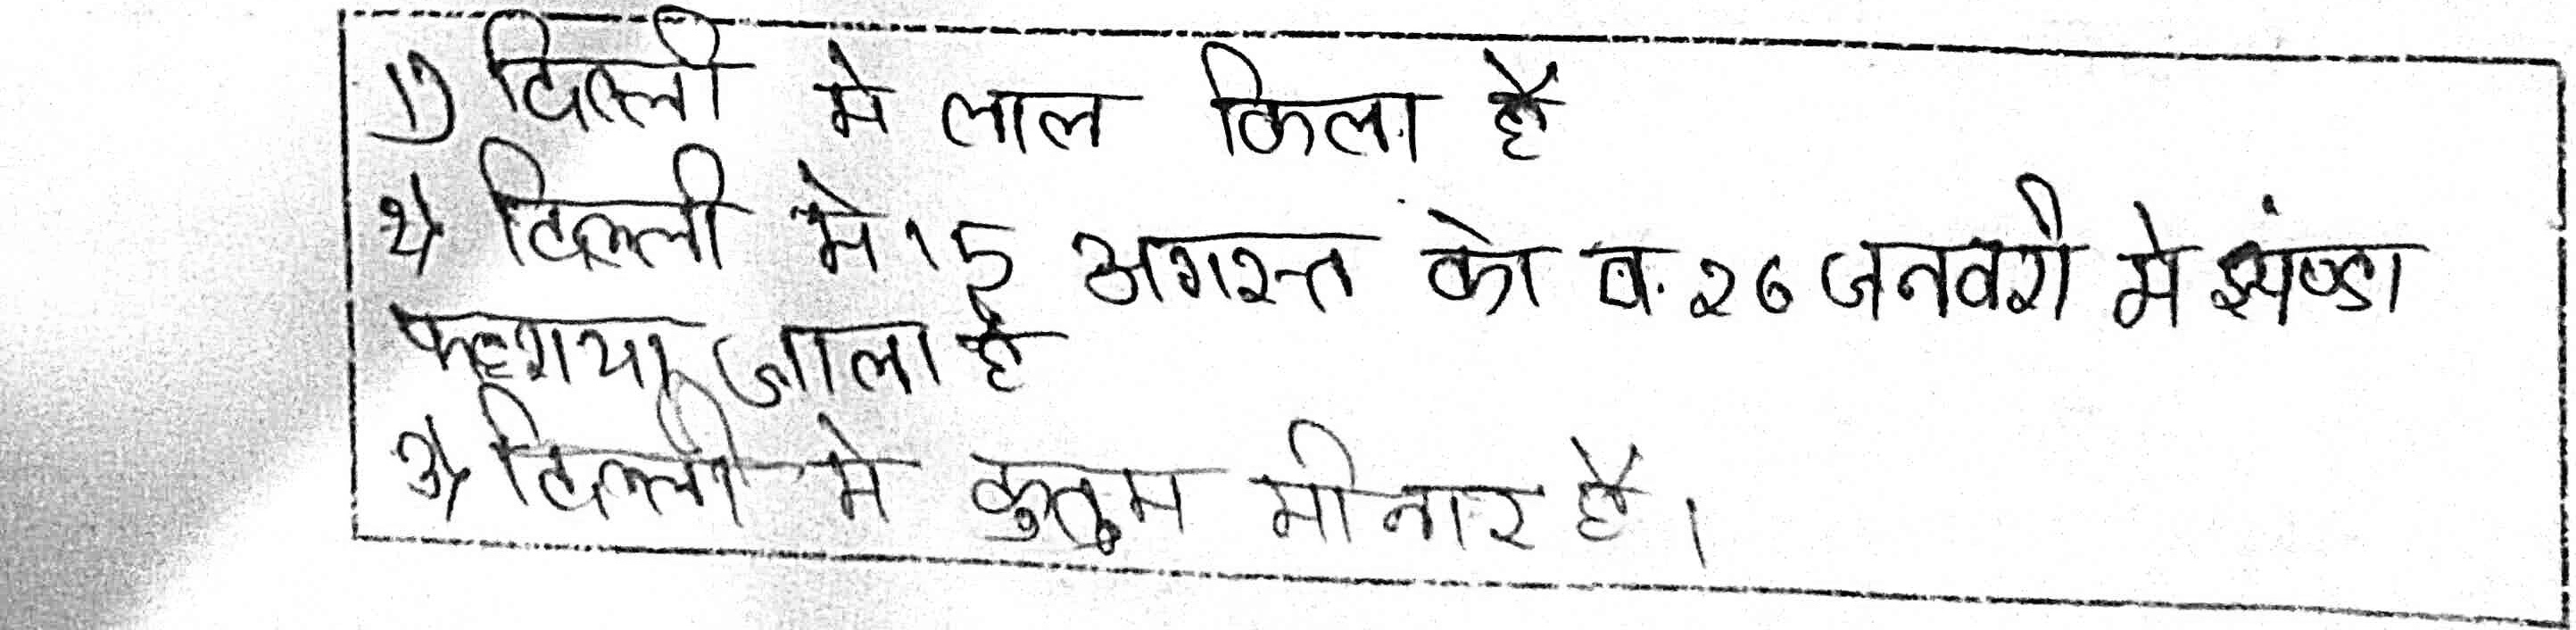 1) दिल्ली मे लाल किला है
2) दिल्ली मे 15 अगस्त को व 26 जनवरी मे झंण्डा
फहराया जाता है
3) दिल्ली मे कुतुम मीनार है।